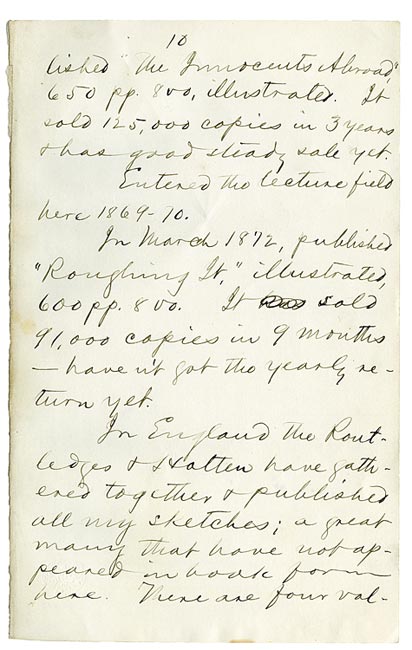 10
lished "The Innocents Abroad,"
650 pp. 8vo, illustrated. It
sold 125,000 copies in 3 years
& has good steady sale yet.
Entered the lecture field
here 1869-70.
In March 1872, published
"Roughing It," illustrated,
600 pp. 8vo. It has sold
91,000 copies in 9 months
— haven't got the yearly re-
turn yet.
In England the Rout-
ledges & Hotten have gath-
ered together & published
all my sketches; a great
many that have not ap-
peared in book form
here. There are four vol-